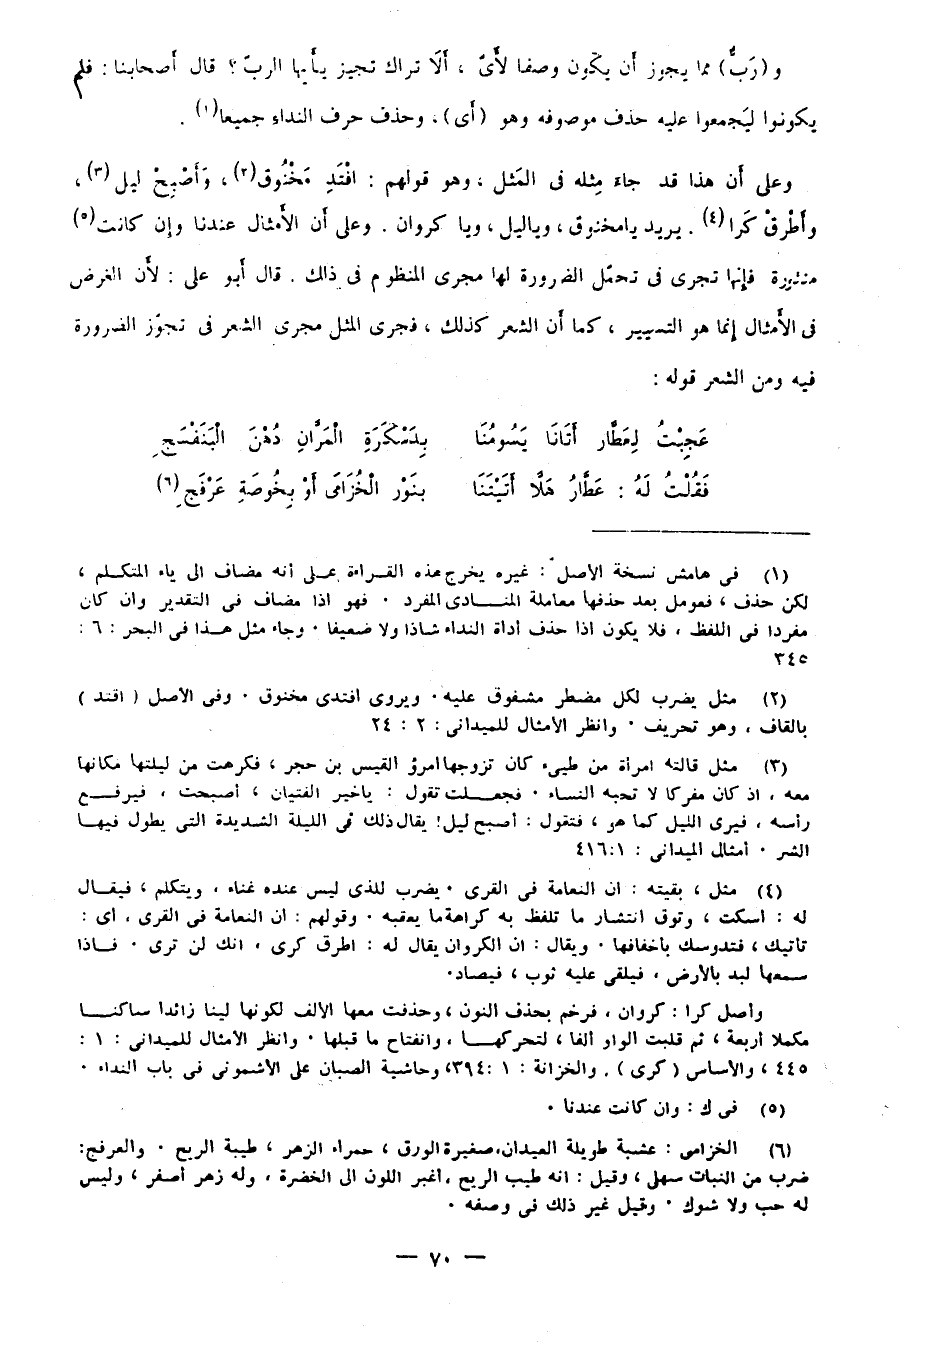 و (رَبُّ) مما يجوز أن يكون وصفا لأىّ ، ألَا تراك تجيز يأيها الربّ ؟ قال أصحابنا : فلم
يكونوا ليَجمعوا عليه حذف موصوفه وهو (أى) ، وحذف حرف النداء جميعا(١) .
وعلى أن هذا قد جاء مِثله فى المَثل ، وهو قولهم : افْتَدِ مَخْنُوق(٢) ، وَأَصْبِحْ ليل(٣) ،
وأَطْرِقْ كَرا(٤) . يريد يامخنوق ، وياليل ، ويا كروان . وعلى أن الأمثال عندنا وإن كانت(٥)
منثورة فإنها تجرى فى تحمّل الضرورة لها مجرى المنظوم فى ذلك . قال أبو على : لأن الغرض
فى الأمثال إنما هو التسيير ، كما أن الشعر كذلك ، فجرى المثل مجرى الشعر فى تجوّز الضرورة
فيه ومن الشعر قوله :
عَجِبْتُ لِعَطَّار أَتَانَا يَسُومُنَا بِدَسْكَرَةِ الْمَرَّانِ دُهْنَ الْبَنَفْسَجِ
فَقُلْتُ لَهُ : عَطَّارُ هَلَّا أَتَيْتَنَا بنَوْرِ الْخُزَامَى أَوْ بِخُوصَةِ عَرْفَجِ(٦)
(١) فى هامش نسخة الأصل : غيره يخرج هذه القراءة على أنه مضاف الى ياء المتكلم ،
لكن حذف ، فعومل بعد حذفها معاملة المنادى المفرد . فهو اذا مضاف فى التقدير وان كان
مفردا فى اللفظ ، فلا يكون اذا حذف أداة النداء شاذا ولا ضعيفا . وجاء مثل هذا فى البحر : ٦ :
٣٤٥
(٢) مثل يضرب لكل مضطر مشفوق عليه . ويروى افتدى مخنوق . وفى الأصل ( اقتد )
بالقاف ، وهو تحريف . وانظر الأمثال للميدانى : ٢ : ٢٤
(٣) مثل قالته امرأة من طيىء كان تزوجها امرؤ القيس بن حجر ، فكرهت من ليلتها مكانها
معه ، اذ كان مفركا لا تحبه النساء . فجعلت تقول : ياخير الفتيان ، أصبحت ، فيرفع
رأسه ، فيرى الليل كما هو ، فتقول : أصبح ليل! يقال ذلك فى الليلة الشديدة التى يطول فيها
الشر . أمثال الميدانى : ٤١٦:١
(٤) مثل ، بقيته : ان النعامة فى القرى . يضرب للذى ليس عنده غناء ، ويتكلم ، فيقال
له : اسكت ، وتوق انتشار ما تلفظ به كراهة ما يعقبه . وقولهم : ان النعامة فى القرى ، أى :
تأتيك ، فتدوسك بأخفافها . ويقال : ان الكروان يقال له : اطرق كرى ، انك لن ترى . فاذا
سمعها لبد بالأرض ، فيلقى عليه ثوب ، فيصاد.
وأصل كرا : كروان ، فرخم بحذف النون ، وحذفت معها الألف لكونها لينا زائدا ساكنا
مكملا أربعة ، ثم قلبت الواو ألفا ، لتحركها ، وانفتاح ما قبلها . وانظر الأمثال للميدانى : ١ :
٤٤٥ ، والأساس ( كرى ) . والخزانة : ١ :٣٩٤، وحاشية الصبان على الأشمونى فى باب النداء .
(٥) فى ك : وان كانت عندنا .
(٦) الخزامى : عشبة طويلة العيدان، صغيرة الورق ، حمراء الزهر ، طيبة الريح . والعرفج:
ضرب من النبات سهلى ، وقيل : انه طيب الريح ، أغبر اللون الى الخضرة ، وله زهر أصفر ، وليس
له حب ولا شوك . وقيل غير ذلك فى وصفه .
— ٧٠ —